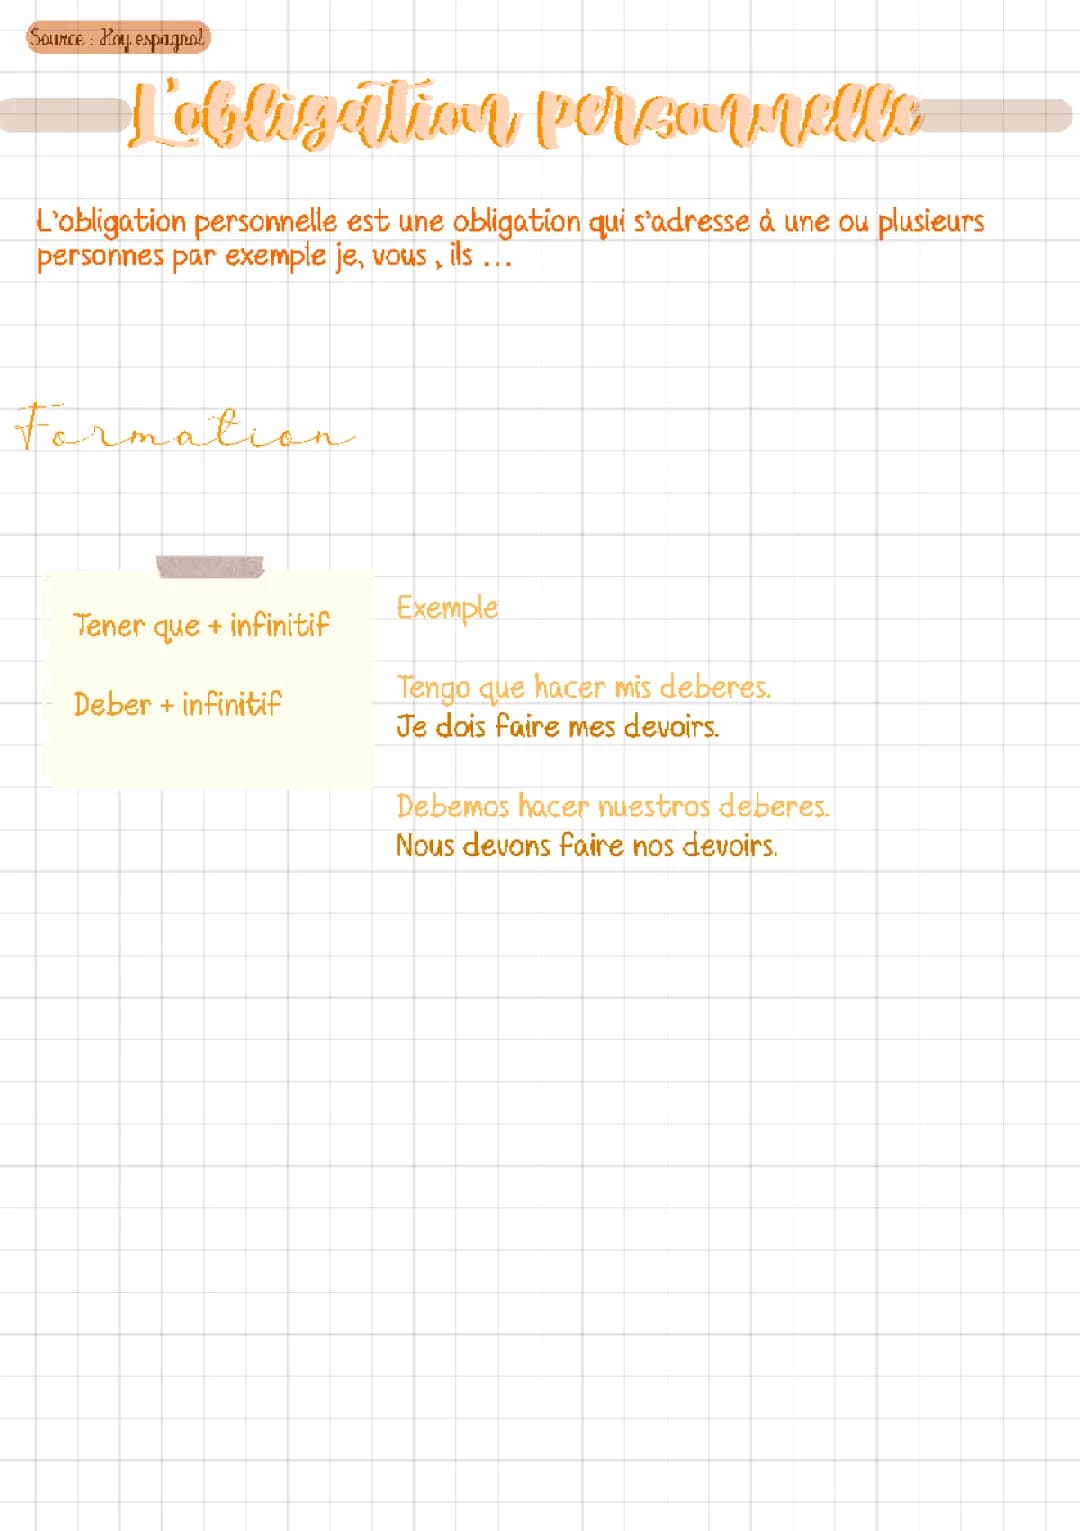 Source : Hoy espagnol
L'obligation personnelle
L'obligation personnelle est une obligation qui s'adresse à une ou plusieurs
personnes par exemple je, vous , ils ...
Formation
Tener que + infinitif
Deber + infinitif
Exemple
Tengo que hacer mis deberes.
Je dois faire mes devoirs.
Debemos hacer nuestros deberes.
Nous devons faire nos devoirs.